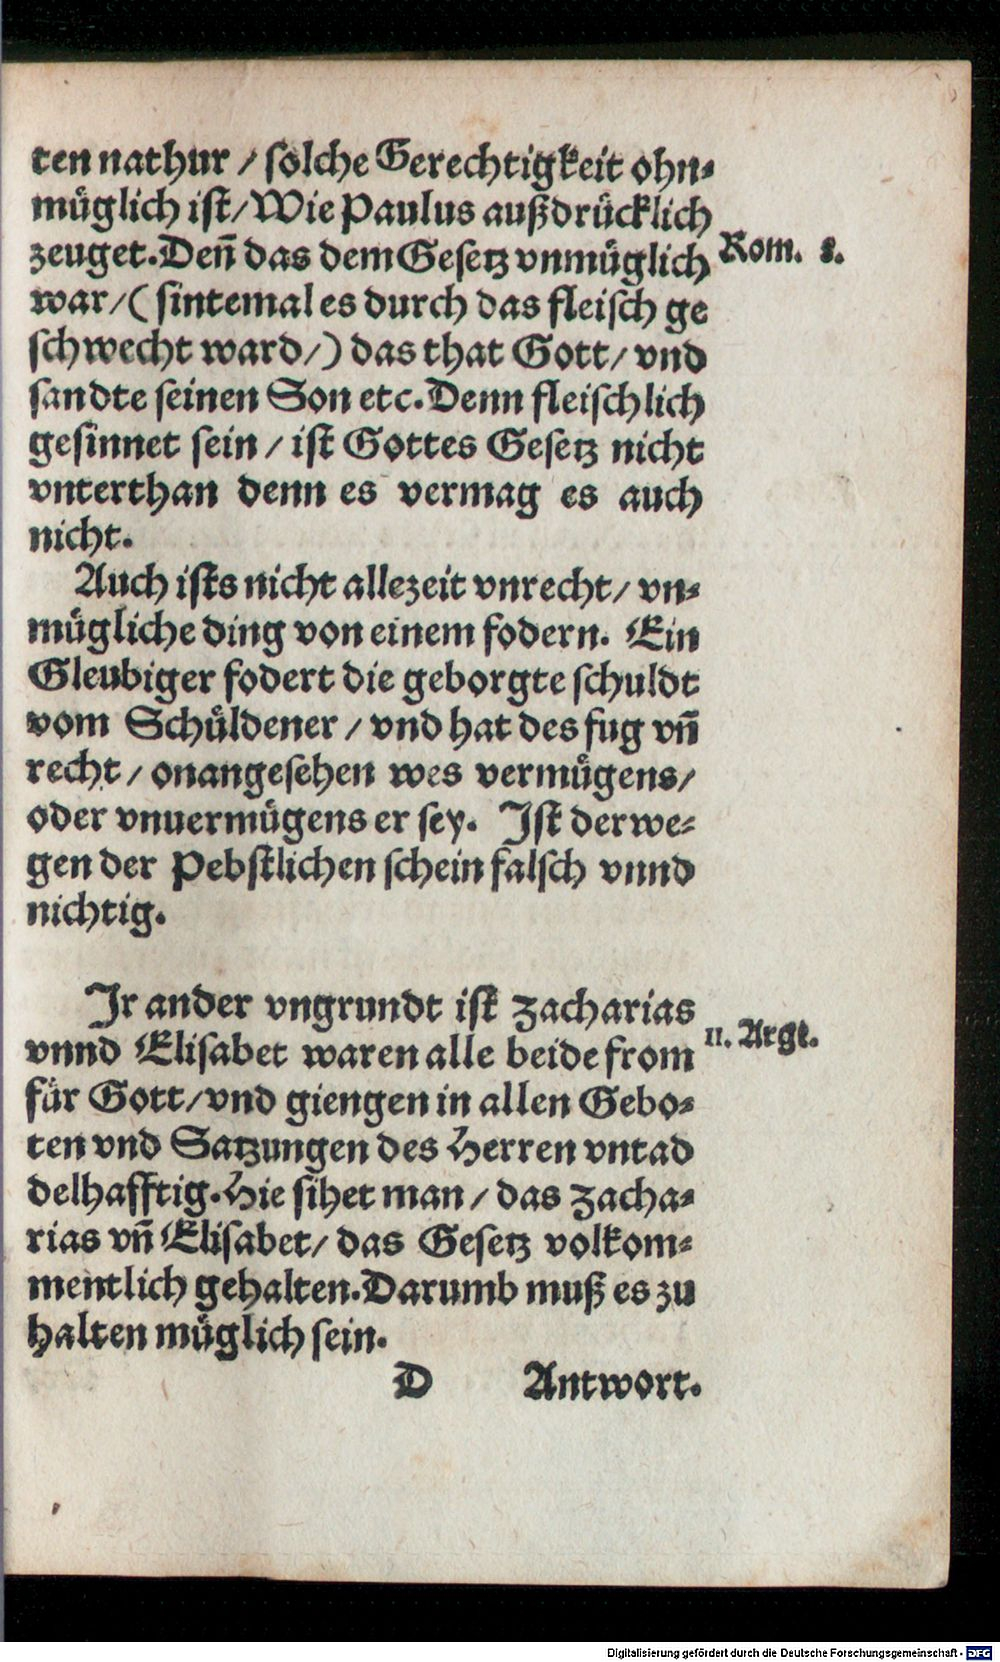 ten nathur / solche Gerechtigkeit ohn-
müglich ist / Wie Paulus außdrücklich
zeuget. Deñ das dem Gesetz vnmüglich
Rom. 8.
war / ( sintemal es durch das fleisch ge
schwecht ward / ) das that Gott / vnd
sandte seinen Son etc. Denn fleischlich
gesinnet sein / ist Gottes Gesetz nicht
vnterthan denn es vermag es auch
nicht.
Auch ists nicht allezeit vnrecht / vn-
mügliche ding von einem fodern. Ein
Gleubiger fodert die geborgte schuldt
vom Schüldener / vnd hat des fug vñ
recht / onangesehen wes vermügens /
oder vnuermügens er sey. Ist derwe-
gen der Pebstlichen schein falsch vnnd
nichtig.
Ir ander vngrundt ist Zacharias
vnnd Elisabet waren alle beide from
II. Argt.
für Gott / vnd giengen in allen Gebo-
ten vnd Satzungen des Herren vntad
delhafftig. Hie sihet man / das Zacha-
rias vñ Elisabet / das Gesetz volkom-
mentlich gehalten. Darumb muß es zu
halten müglich sein.
D Antwort.
Digitalisierung gefördert durch die Deutsche Forschungsgemeinschaft - DFG